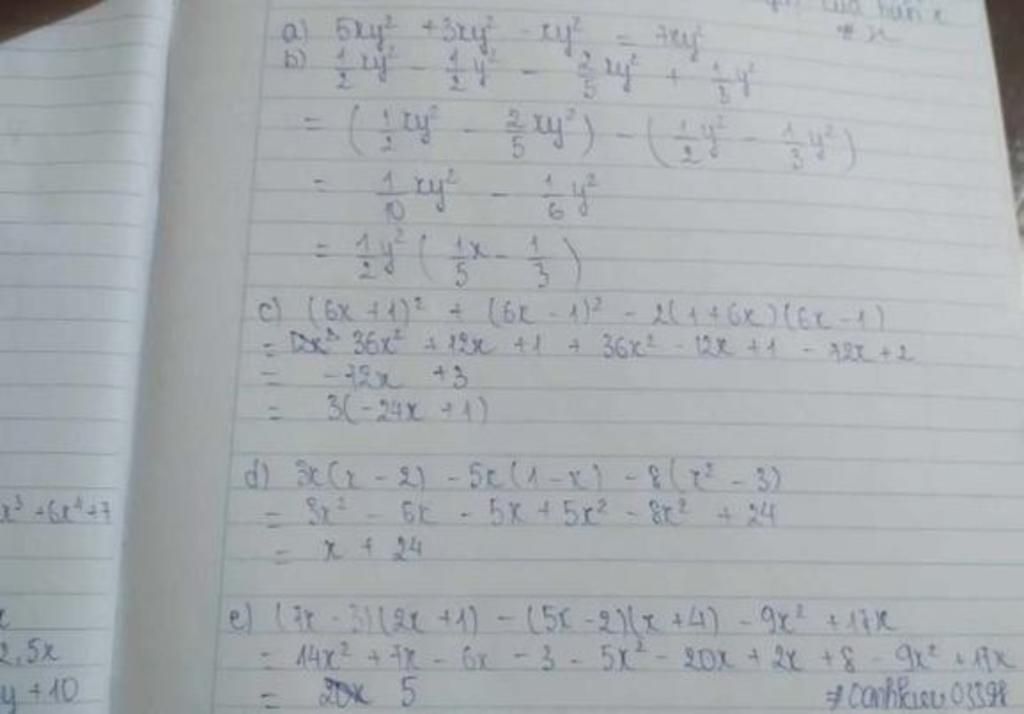 a) 5xy² + 3xy² - xy² = 7xy²
b) 1/2 xy² - 1/2 y² - 2/5 xy² + 1/3 y²
= (1/2 xy² - 2/5 xy²) - (1/2 y² - 1/3 y²)
= 1/10 xy² - 1/6 y²
= 1/2 y² (1/5 x - 1/3)
c) (6x + 1)² + (6x - 1)² - 2(1 + 6x)(6x - 1)
= 36x² + 12x + 1 + 36x² - 12x + 1 - 72x + 2
= -72x + 3
= 3(-24x + 1)
d) 3x(x - 2) - 5x(1 - x) - 8(x² - 3)
= 3x² - 6x - 5x + 5x² - 8x² + 24
= x + 24
x³ + 6x⁴ + 7
e) (7x - 3)(2x + 1) - (5x - 2)(x + 4) - 9x² + 17x
= 14x² + 7x - 6x - 3 - 5x² - 20x + 2x + 8 - 9x² + 17x
= 5
2,5x
y + 10